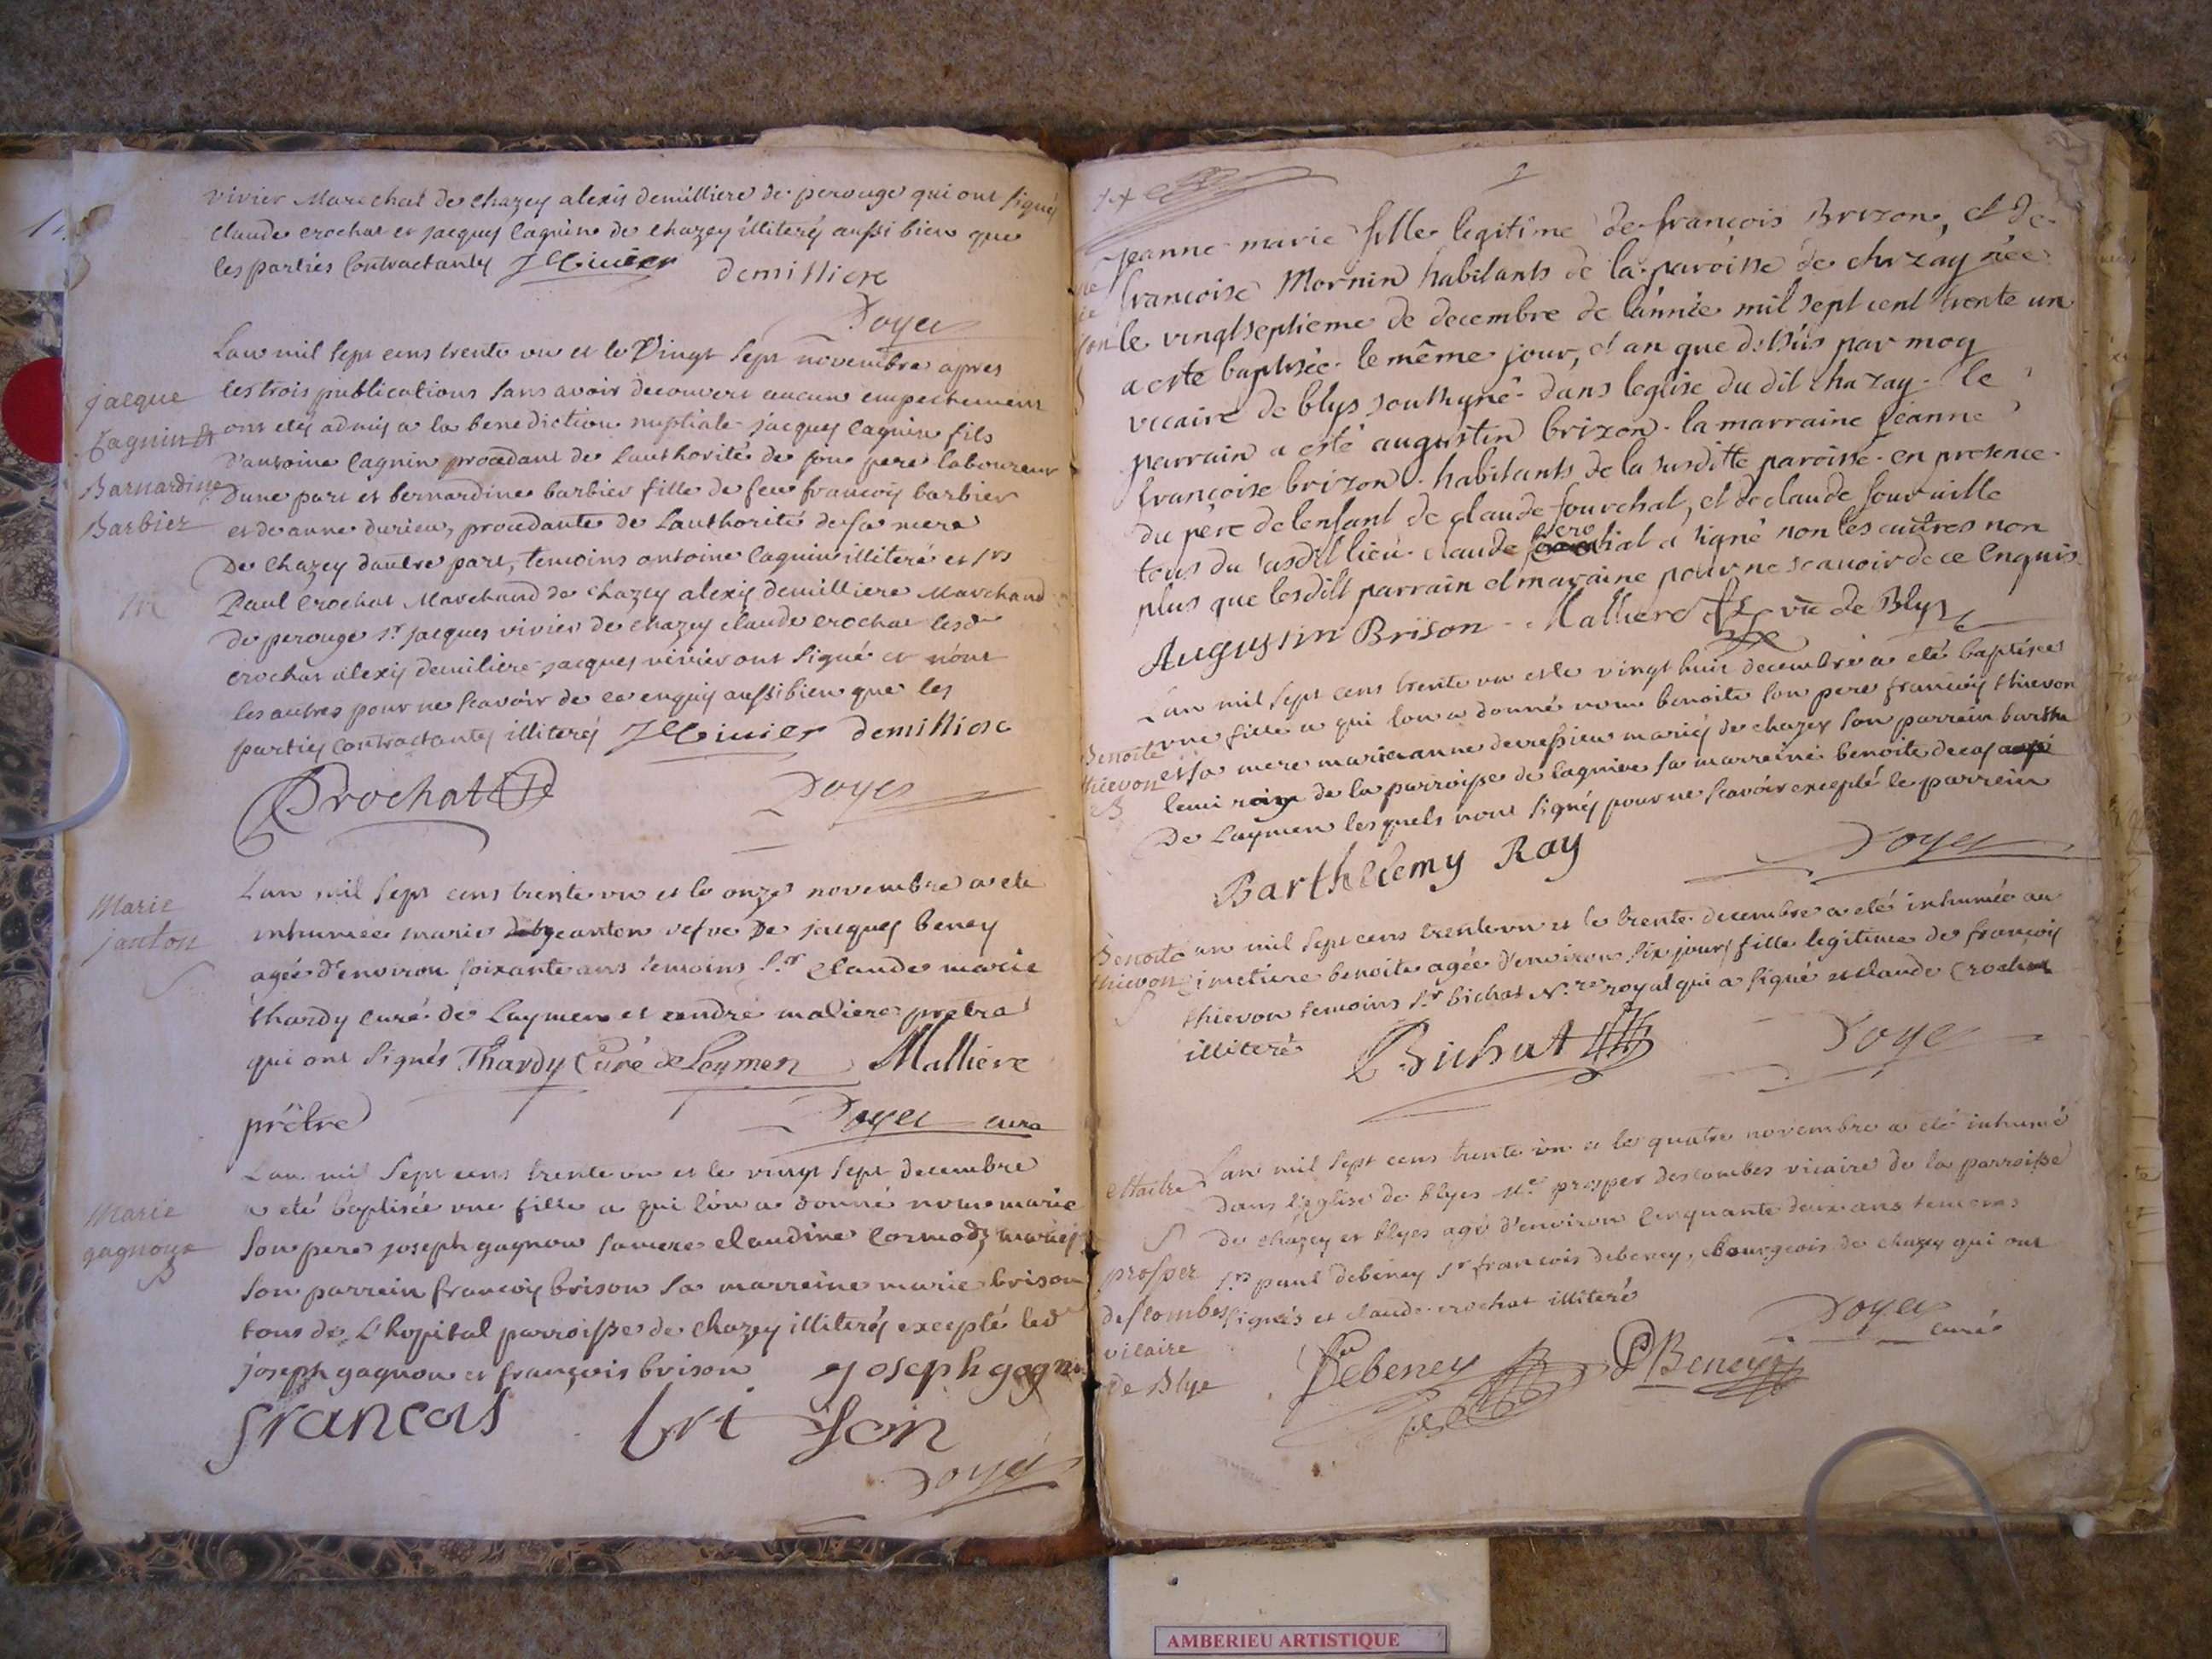 vivier Marechal de chazey alexis demilliere de perouge qui ont signé
claude crochat et jacques cagnin de chazey illiterés aussi bien que
les parties contractantes JVivier demilliere
Doyer
Jacque
Cagnin et
Barnardine
Barbier
M
L'an mil sept cens trente un et le vingt sept novembre apres
les trois publications sans avoir decouvert aucun empechement
ont etés admis a la benediction nuptiale jacques cagnin fils
d'antoine cagnin procedant de l'authorité de son pere laboureur
d'une part et bernardine barbier fille de feu françois barbier
et de anne durieu, procedante de l'authorité de sa mere
de chazey d'autre part, temoins antoine cagnin illiteré et srs
Paul Crochat Marchand de chazey alexis demilliere Marchand
de perouge sr jacques vivier de chazey claude crochat lesd
crochat alexis demiliere jacques vivier ont signé et non
les autres pour ne scavoir de ce enquis aussi bien que les
parties contractantes illiterés JVivier demilliere
PCrochat
Doyer
Marie
janton
S
L'an mil sept cens trente un et le onze novembre a eté
inhumée marie jeanton vefve de jacques beney
agée d'environ soixante ans temoins sr claude marie
thardy curé de Laymen et andré maliere pretre
qui ont signés Thardy Curé de Loymen Mallière
prêtre
Doyer curé
Marie
gagnoux
B
L'an mil sept cens trente un et le vingt sept decembre
a eté baptisée une fille a qui l'on a donné nom marie
son pere joseph gagnon sa mere claudine cormoz mariés
son parrein françois brison sa marreine marie brison
tous de L'hopital parroisse de chazey illiterés excepté led
joseph gagnon et françois brison joseph gagni
francois bri son
Doyer
jeanne marie fille legitime de françois Brizon, et de
francoise Mornin habitants de la paroisse de chazay née
le vingtseptieme de decembre de l'année mil sept cent trente un
a esté baptisée le même jour, et an que dessus par moy
vicaire de blys soussyné dans leglise du dit chazay. le
parrain a esté augustin brizon. la marraine jeanne
françoise brizon. habitants de la susditte paroisse. en presence
du père de lenfant de claude fourchat, et de claude fouraille
tous du susdit lieu. claude crochat a signé non les autres non
plus que lesdits parrain et maraine pour ne scavoir de ce enquis.
Augustin Brison Malliere vic de Blys
Benoite
thievon
B
L'an mil sept cens trente un et le vingt huit decembre a eté baptisée
une fille a qui l'on a donné nom benoite son pere françois thievon
et sa mere marieanne devressieu mariés de chazey son parrein barthe
lemi raige de la parroisse de lagnieu sa marreine benoite decas
de Laymen lesquels n'ont signés pour ne scavoir excepté le parrein
Barthelemy Ray
Doyer
Benoite
thievon
S
L'an mil sept cens trente un et le trente decembre a eté inhumée au
cimetiere benoite agée d'environ six jours fille legitime de françois
thievon temoins sr bichat Nre royal qui a signé et claude Crochat
illiteré
Bichat
Doye
Maitre
S
prosper
descombes
vicaire
de Blye
L'an mil sept cens trente un et le quatre novembre a eté inhumé
dans l'eglise de blyes Me prosper descombes vicaire de la parroisse
de chazey et blyes agé d'environ Cinquante deux ans temoins
srs paul debeney sr françois debeney, bourgeois de chazey qui ont
signés et claude crochat illiteré
Doyer
curé
Debeney
PBeney
AMBERIEU ARTISTIQUE